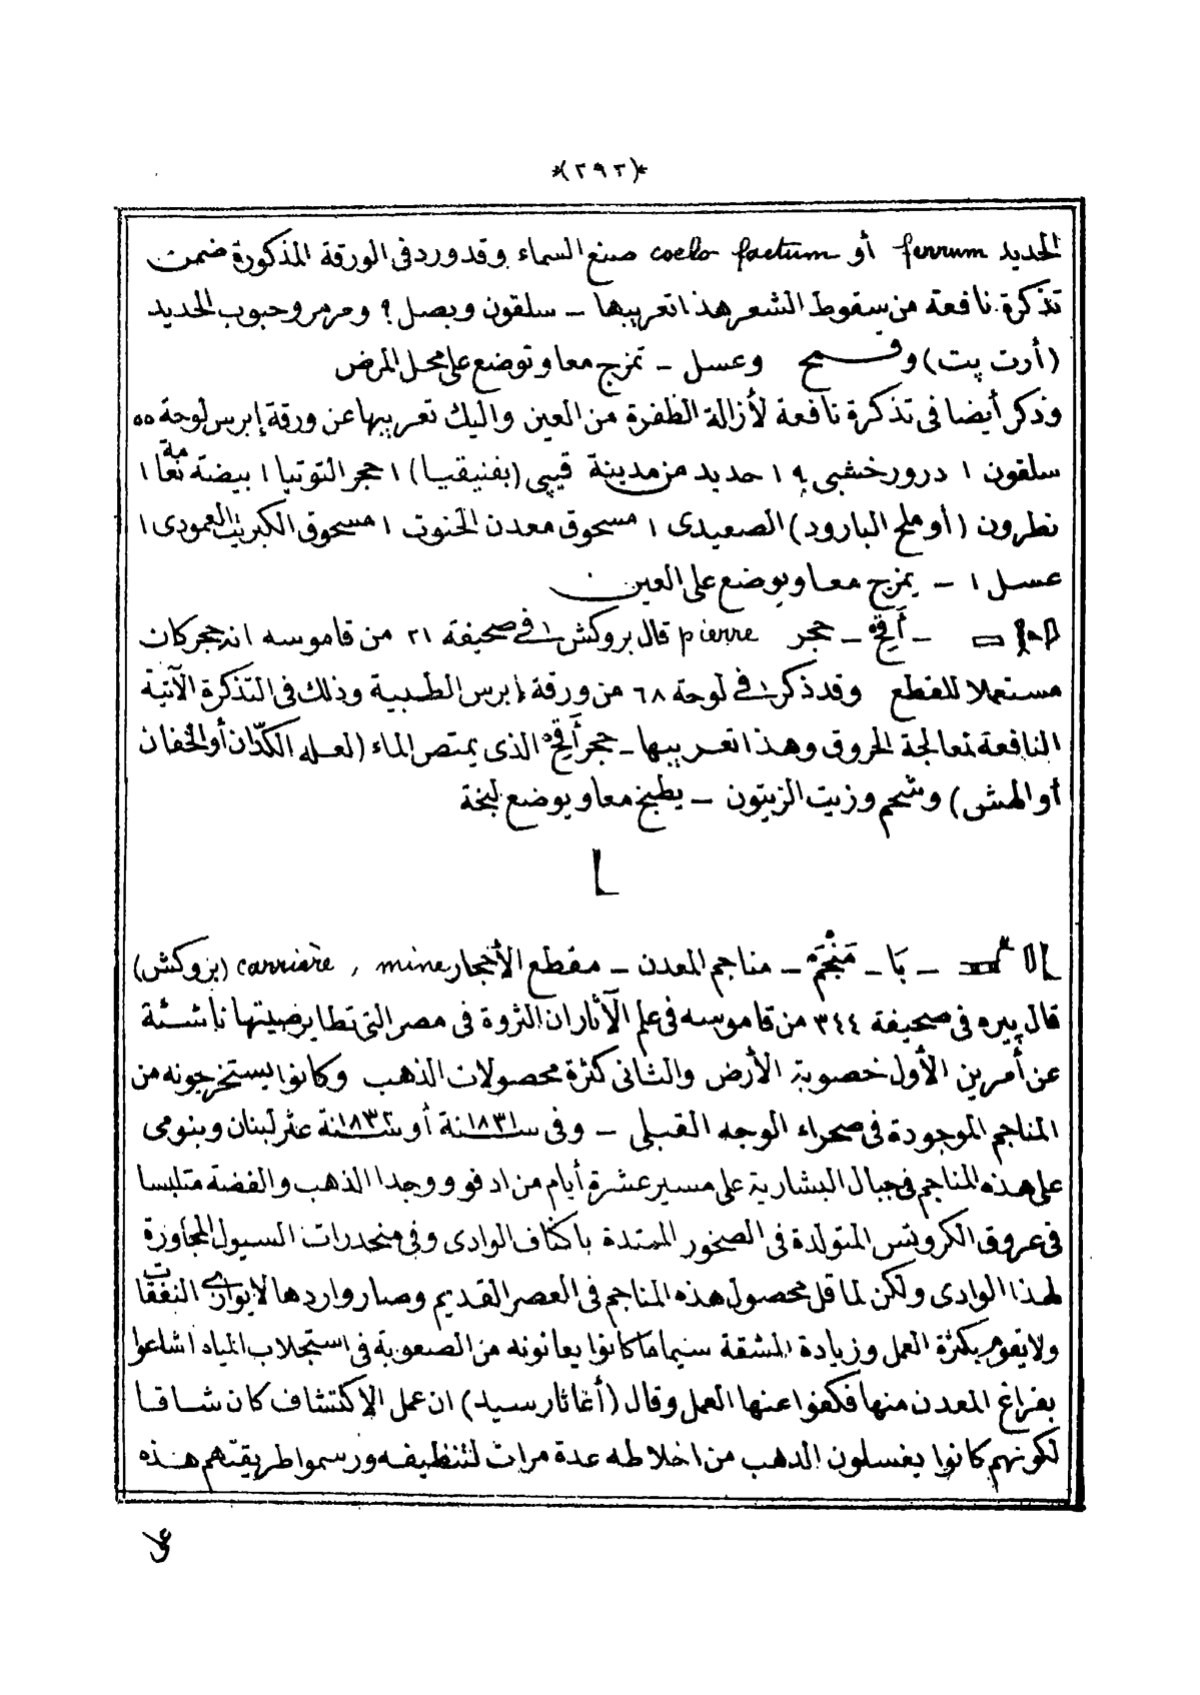 *(٢٩٢)*
الحديد ferrum أو coelo factum صنع السماء وقد ورد فى الورقة المذكورة ضمن
تذكرة نافعة من سقوط الشعر هذا تعريبها ــ سلقون وبصل ؟ ومرمر وحبوب الحديد
(أرت پت) وقمح وعسل ــ تمزج معا وتوضع على محل المرض
وذكر أيضا فى تذكرة نافعة لأزالة الظفرة من العين واليك تعريبها عن ورقة إبرس لوحة ٥٥
سلقون ١ درور خشبى ؟ ١ حديد من مدينة قيپى (بفنيقيا) ١ حجر التوتيا ١ بيضة نعامة ١
نطرون (أو ملح البارود) الصعيدى ١ مسحوق معدن الخنوت ١ مسحوق الكبريت العمودى ١
عسل ١ ــ يمزج معا ويوضع على العين
ــ أَقِحْ ــ حجر pierre قال بروكش باشا فى صحيفة ٢١ من قاموسه انه حجر كان
مستعملا للقطع وقد ذكر فى لوحة ٦٨ من ورقة إبرس الطبية وذلك فى التذكرة الآتية
النافعة لمعالجة الحروق وهذا تعريبها ــ حجر أَقِحْ الذى يمتص الماء (لعله الكدّان أو الخفان
أو الهش) وشحم وزيت الزيتون ــ يطبخ معا ويوضع لبخة
ــ بَا ــ مَنْجَمْ ــ مناجم المعدن ــ مقطع الأحجار carrière , mine (بروكش)
قال پيره فى صحيفة ٣٤٤ من قاموسه فى علم الآثار ان الثروة فى مصر التى تطاير صيتها ناشئة
عن أمرين الأول خصوبة الأرض والثانى كثرة محصولات الذهب وكانوا يستخرجونه من
المناجم الموجودة فى صحراء الوجه القبلى ــ وفى سنة ١٨٣١ أو سنة ١٨٣٢ عثر لبنان وبنومى
على هذه المناجم فى جبال البشارية على مسير عشرة أيام من ادفو ووجدا الذهب والفضة متلبسا
فى عروق الكروتس المتولدة فى الصخور الممتدة باكناف الوادى وفى منحدرات السيول المجاورة
لهذا الوادى ولكن لما قل محصول هذه المناجم فى العصر القديم وصار واردها لا يوازى النفقات
ولا يقوم بكثرة العمل وزيادة المشقة سيما ما كانوا يعانونه من الصعوبة فى استجلاب المياه اشاعوا
بفراغ المعدن منها فكفوا عنها العمل وقال (أغاثارسيد) ان عمل الاكتشاف كان شاقا
لكونهم كانوا يغسلون الدهب من اخلاطه عدة مرات لتنظيفه ورسموا طريقتهم هذه
على